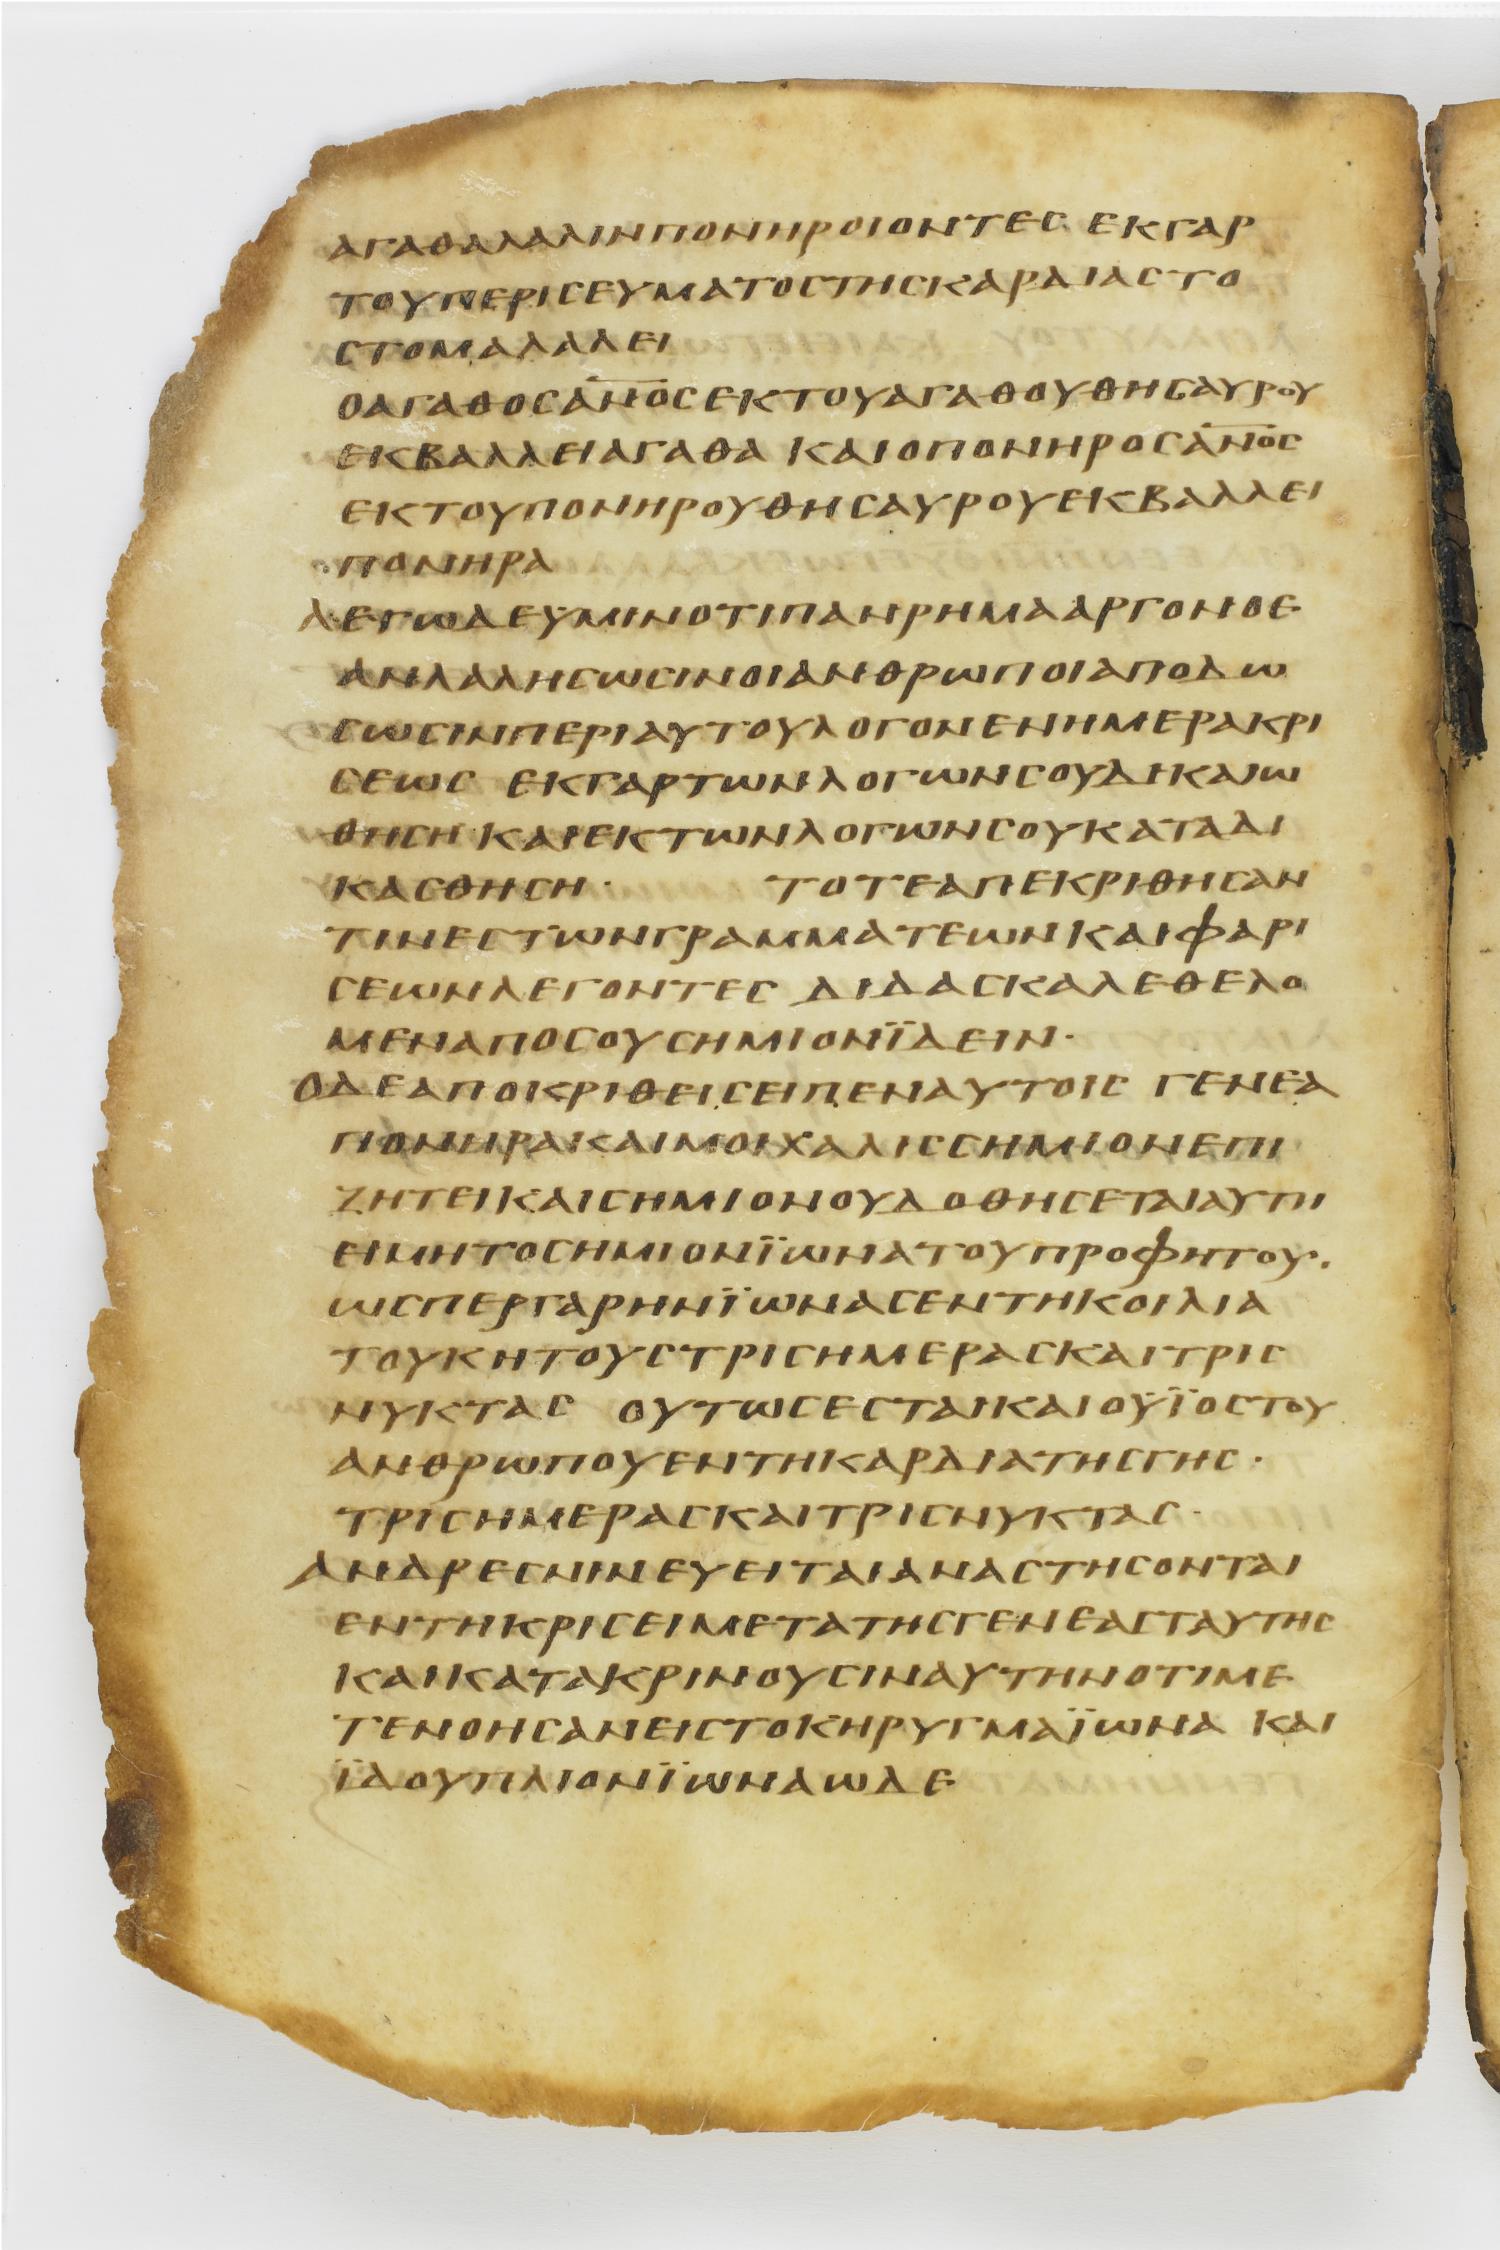 ΑΓΑΘΑΛΑΛΙΝΠΟΝΗΡΟΙΟΝΤΕC ΕΚΓΑΡ
ΤΟΥΠΕΡΙCΕΥΜΑΤΟCΤΗCΚΑΡΔΙΑCΤΟ
CΤΟΜΑΛΑΛΕΙ
ΟΑΓΑΘΟCΑ̅Ν̅Ο̅CΕΚΤΟΥΑΓΑΘΟΥΘΗCΑΥΡΟΥ
ΕΚΒΑΛΛΕΙΑΓΑΘΑ ΚΑΙΟΠΟΝΗΡΟCΑ̅Ν̅Ο̅C
ΕΚΤΟΥΠΟΝΗΡΟΥΘΗCΑΥΡΟΥΕΚΒΑΛΛΕΙ
ΠΟΝΗΡΑ
ΛΕΓΩΔΕΥΜΙΝΟΤΙΠΑΝΡΗΜΑΑΡΓΟΝΟΕ
ΑΝΛΑΛΗCΩCΙΝΟΙΑΝΘΡΩΠΟΙΑΠΟΔΩ
CΩCΙΝΠΕΡΙΑΥΤΟΥΛΟΓΟΝΕΝΗΜΕΡΑΚΡΙ
CΕΩC ΕΚΓΑΡΤΩΝΛΟΓΩΝCΟΥΔΙΚΑΙΩ
ΘΗCΗ ΚΑΙΕΚΤΩΝΛΟΓΩΝCΟΥΚΑΤΑΔΙ
ΚΑCΘΗCΗ· ΤΟΤΕΑΠΕΚΡΙΘΗCΑΝ
ΤΙΝΕCΤΩΝΓΡΑΜΜΑΤΕΩΝΚΑΙΦΑΡΙ
CΕΩΝΛΕΓΟΝΤΕC ΔΙΔΑCΚΑΛΕΘΕΛΟ
ΜΕΝΑΠΟCΟΥCΗΜΙΟΝΪΔΕΙΝ·
ΟΔΕΑΠΟΚΡΙΘΕΙCΕΙΠΕΝΑΥΤΟΙC ΓΕΝΕΑ
ΠΟΝΗΡΑΚΑΙΜΟΙΧΑΛΙCCΗΜΙΟΝΕΠΙ
ΖΗΤΕΙΚΑΙCΗΜΙΟΝΟΥΔΟΘΗCΕΤΑΙΑΥΤΗ
ΕΙΜΗΤΟCΗΜΙΟΝΪΩΝΑΤΟΥΠΡΟΦΗΤΟΥ·
ΩCΠΕΡΓΑΡΗΝΪΩΝΑCΕΝΤΗΚΟΙΛΙΑ
ΤΟΥΚΗΤΟΥCΤΡΙCΗΜΕΡΑCΚΑΙΤΡΙC
ΝΥΚΤΑC ΟΥΤΩCΕCΤΑΙΚΑΙΟΫΪΟCΤΟΥ
ΑΝΘΡΩΠΟΥΕΝΤΗΚΑΡΔΙΑΤΗCΓΗC·
ΤΡΙCΗΜΕΡΑCΚΑΙΤΡΙCΝΥΚΤΑC·
ΑΝΔΡΕCΝΙΝΕΥΕΙΤΑΙΑΝΑCΤΗCΟΝΤΑΙ
ΕΝΤΗΚΡΙCΕΙΜΕΤΑΤΗCΓΕΝΕΑCΤΑΥΤΗC
ΚΑΙΚΑΤΑΚΡΙΝΟΥCΙΝΑΥΤΗΝΟΤΙΜΕ
ΤΕΝΟΗCΑΝΕΙCΤΟΚΗΡΥΓΜΑΪΩΝΑ ΚΑΙ
ΪΔΟΥΠΛΙΟΝΪΩΝΑΩΔΕ